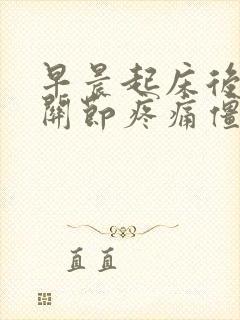 早晨起床後
關節疼痛僵
直直